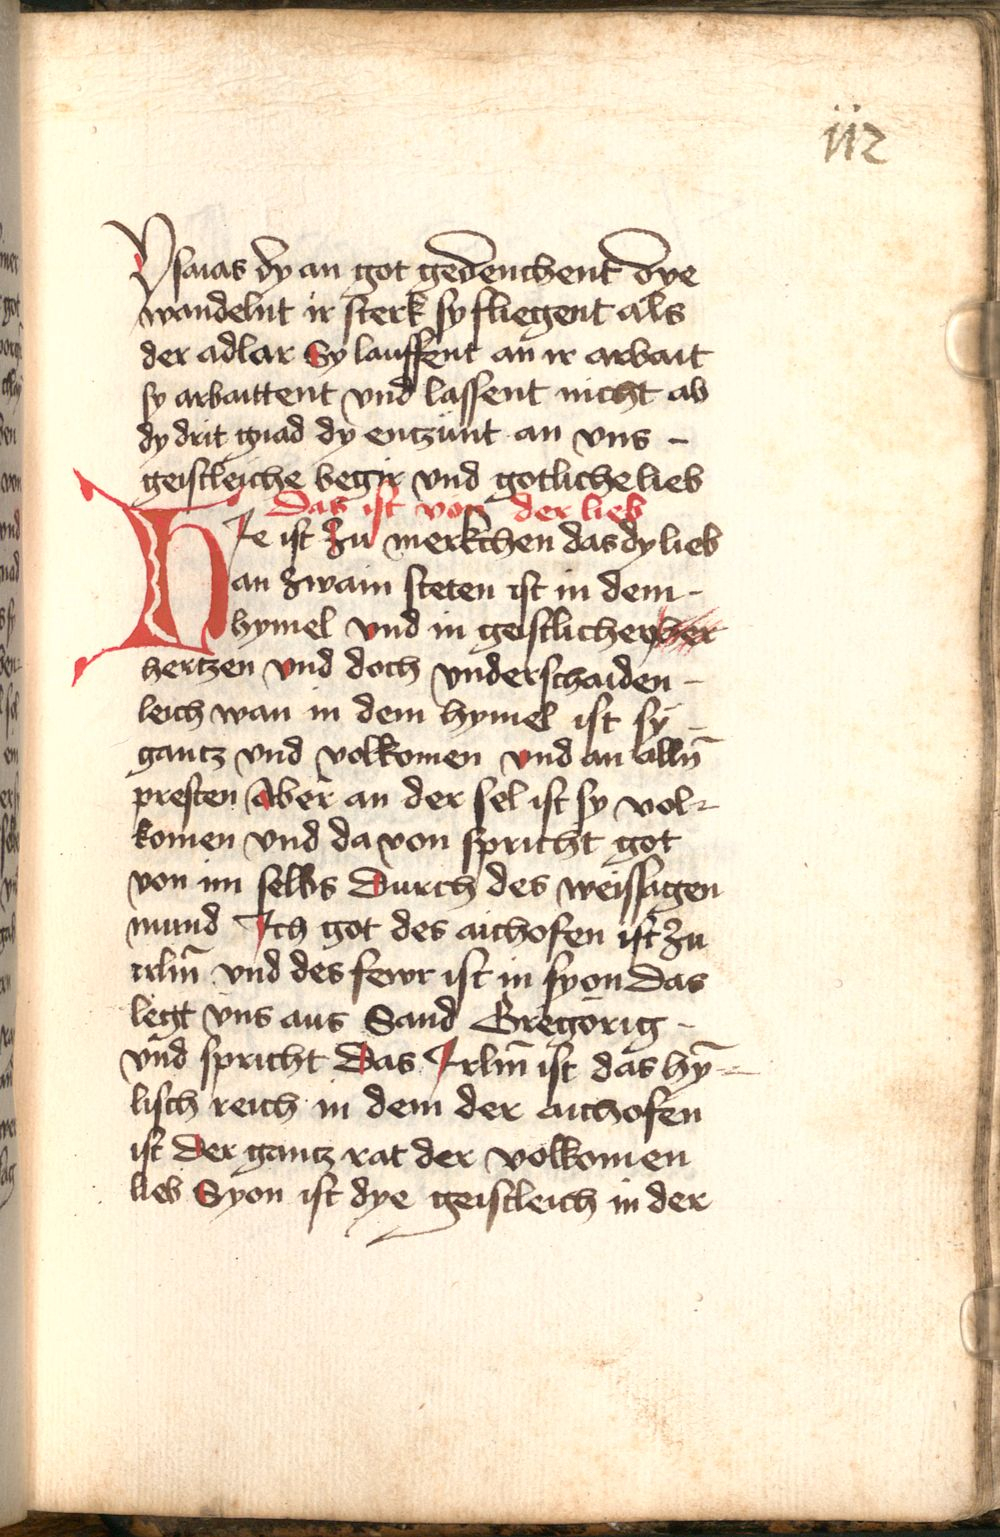 112
Ysaias dy an got gedenchent dye
wandelnt ir sterk sy fliegent als
der adlar Sy lauffent an ir arbait
sy arbaittent vnd lassent nicht ab
dy drit gnad dy entzünt an vns -
geistleiche begir vnd gotliche lieb
Das ist von der lieb
HIe ist zu merkchen das dy lieb
an zwain steten ist in dem -
hymel vnd in geistlicher
hertzen vnd doch vnderschaiden -
leich wan in dem hymel ist sy -
gantz vnd volkomen vnd an alln̄
presten Aber an der sel ist sy vol-
komen vnd da von spricht got
von im selbs Durch des weissagen
mund Ich got des aichofen ist zu
irlm̄ vnd des fewr ist in syon Das
legt vns aus Sand Gregorig -
vnd spricht Das Irlm̄ ist das hȳ-
lisch reich in dem der aichofen
ist Der gantz rat der volkomen
lieb Syon ist dye geistleich in der